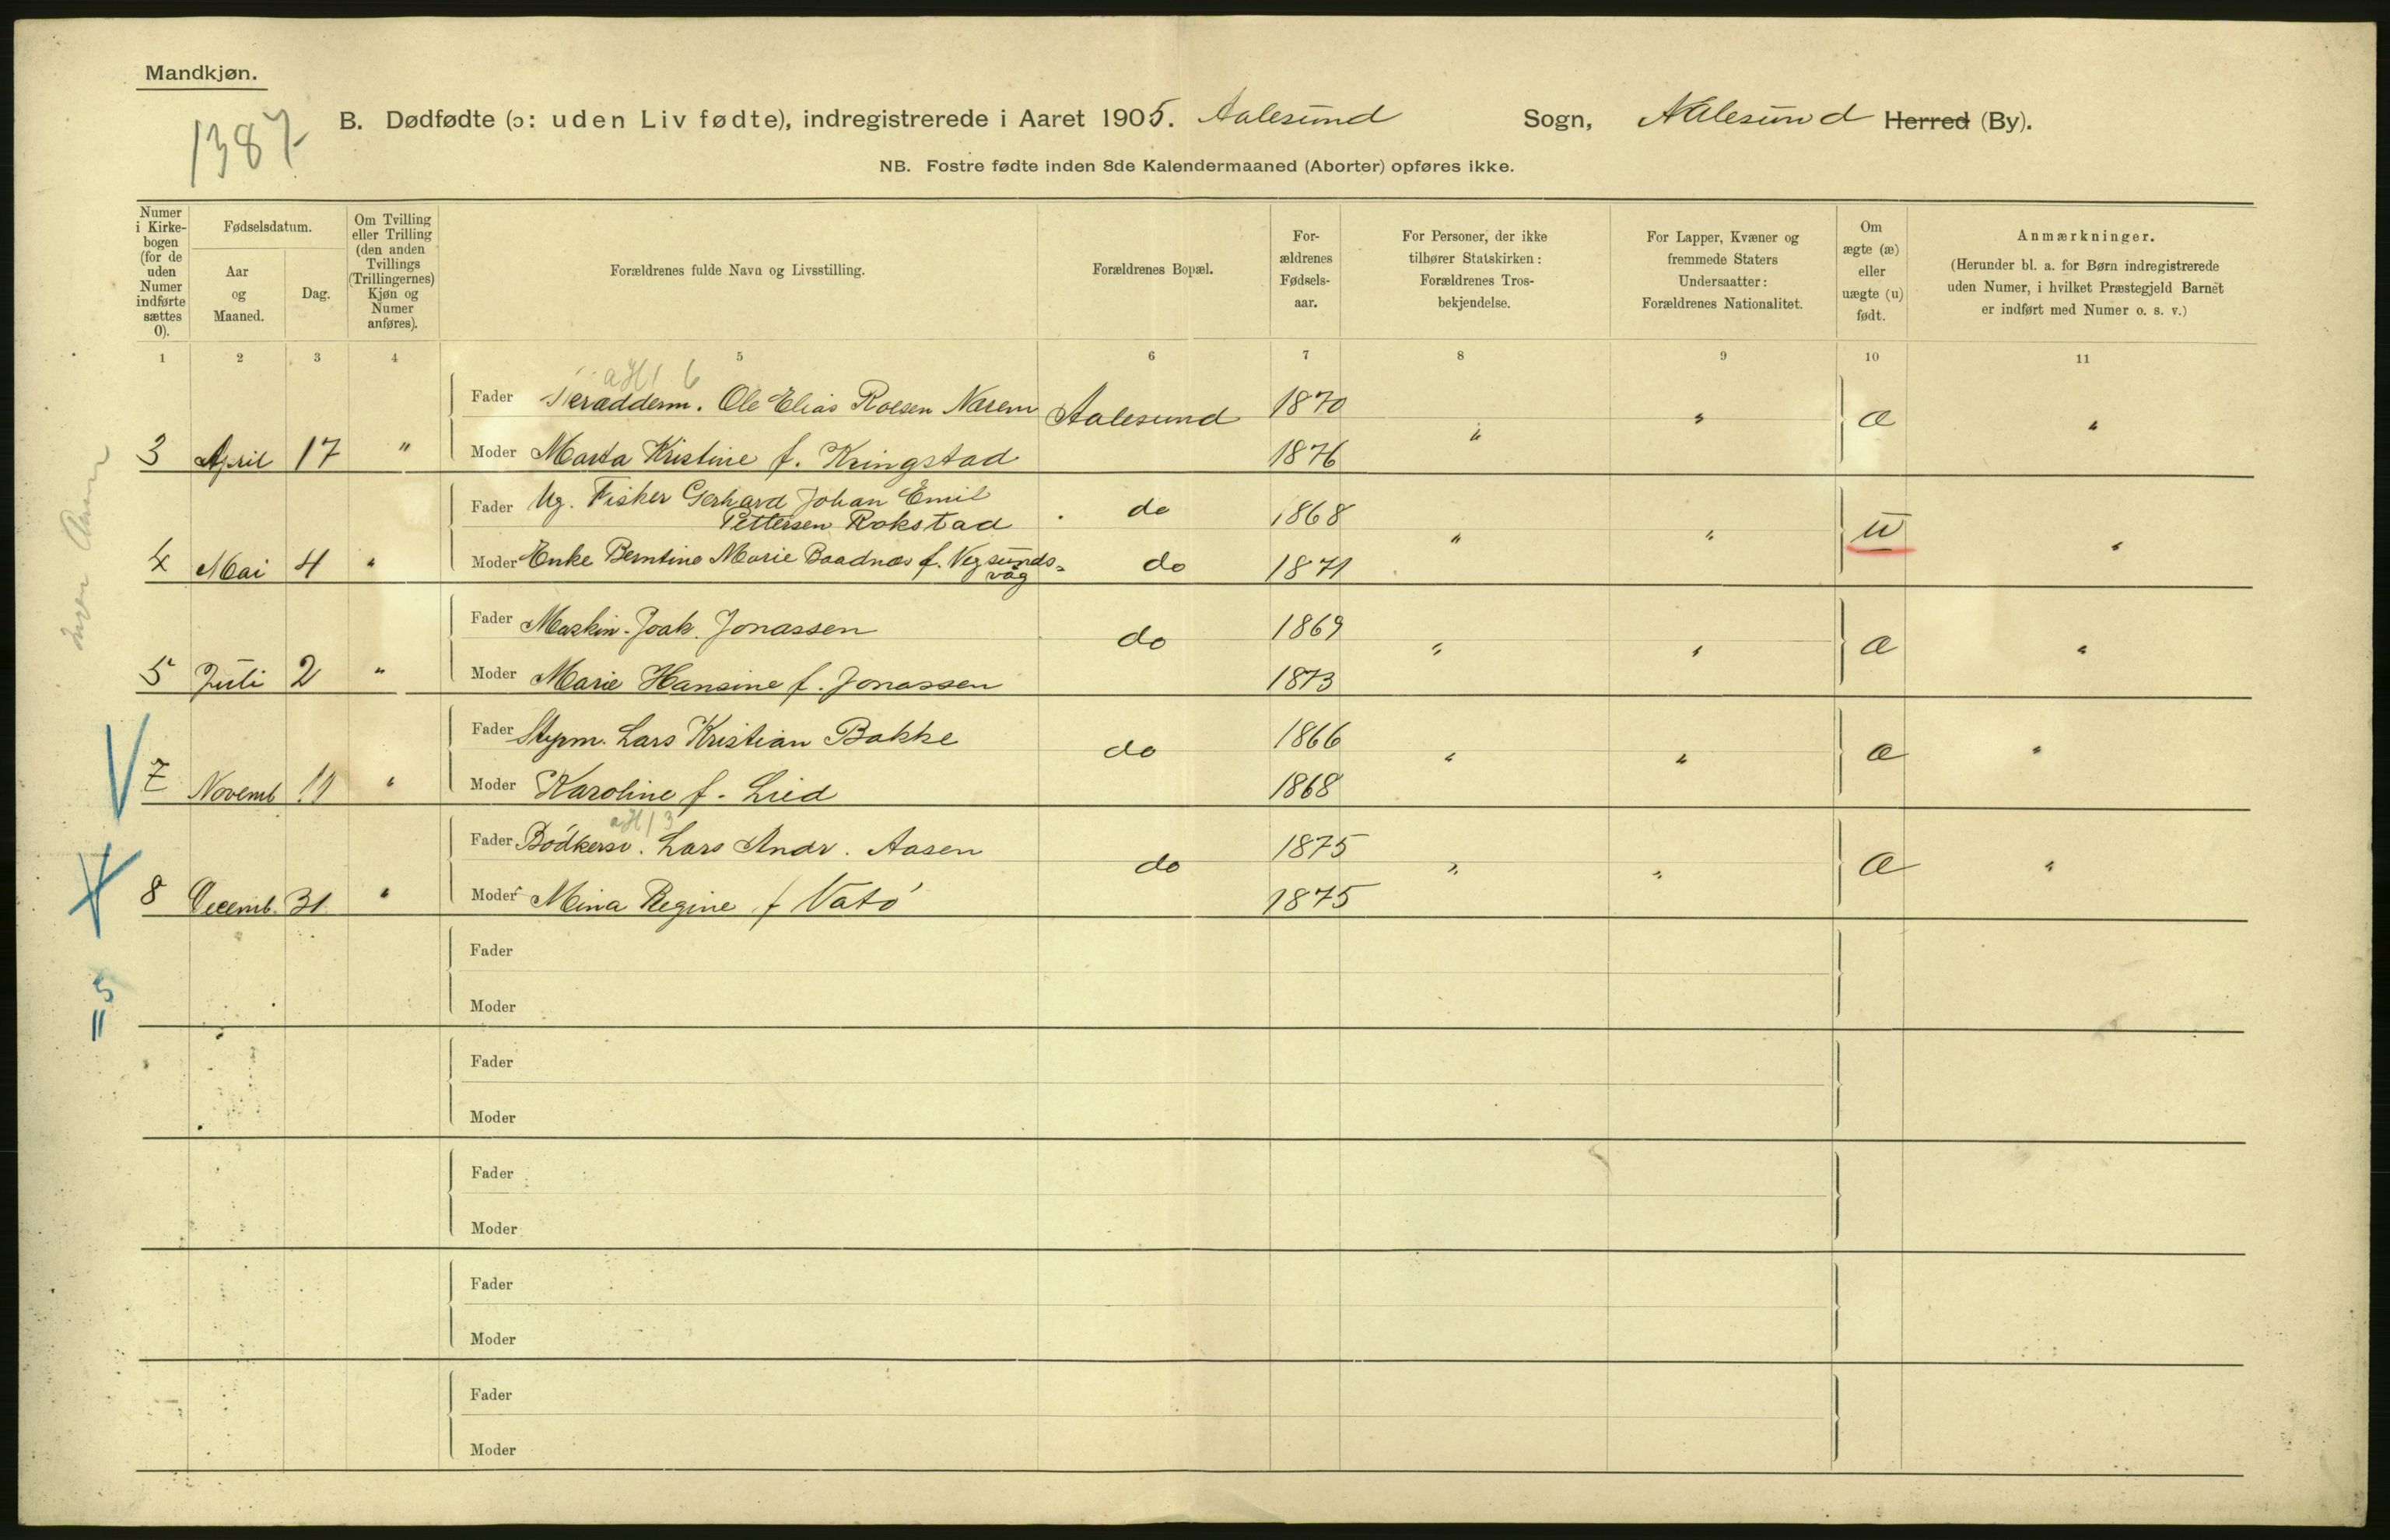 Mandkjøn.
1387
B. Dødfødte (ɔ: uden Liv fødte), indregistrerede i Aaret 1905. Aalesund Sogn, Aalesund Herred (By).
NB. Fostre fødte inden 8de Kalendermaaned (Aborter) opføres ikke.
Numer i Kirke-bogen (for de uden Numer indførte sættes 0).
Fødselsdatum.
Aar og Maaned.
Dag.
Om Tvilling eller Trilling (den anden Tvillings (Trillingernes) Kjøn og Numer anføres).
Forældrenes fulde Navn og Livsstilling.
Forældrenes Bopæl.
For-ældrenes Fødsels-aar.
For Personer, der ikke tilhører Statskirken: Forældrenes Tros-bekjendelse.
For Lapper, Kvæner og fremmede Staters Undersaatter: Forældrenes Nationalitet.
Om ægte (æ) eller uægte (u) født.
Anmærkninger.
(Herunder bl. a. for Børn indregistrerede uden Numer, i hvilket Præstegjeld Barnet er indført med Numer o. s. v.)
1 2 3 4 5 6 7 8 9 10 11
Fader Ole Elias Roesen Aalesund 1870 " " æ "
3 April 17 " Moder Marta Kristine f. Kringstad 1876
Fader Ug. Fisker Gerhard Johan Emil
Pettersen Rokstad do 1868 " " u "
4 Mai 4 " Moder Enke Berntine Marie Baadnæs f. Vegsunds-
våg do 1871
Fader Maskin. Joak. Jonassen do 1869 " " æ "
5 Juli 2 " Moder Marie Hansine f. Jonassen 1873
Fader Styrm. Lars Kristian Bakke do 1866 " " æ "
7 Novemb 11 " Moder Karoline f. Lied 1868
Fader Bødkersv. Lars Andr. Aasen do 1875 " " æ "
8 Decemb. 31 " Moder Mina Regine f Vatø 1875
Fader
Moder
= 5
Fader
Moder
Fader
Moder
Fader
Moder
Fader
Moder